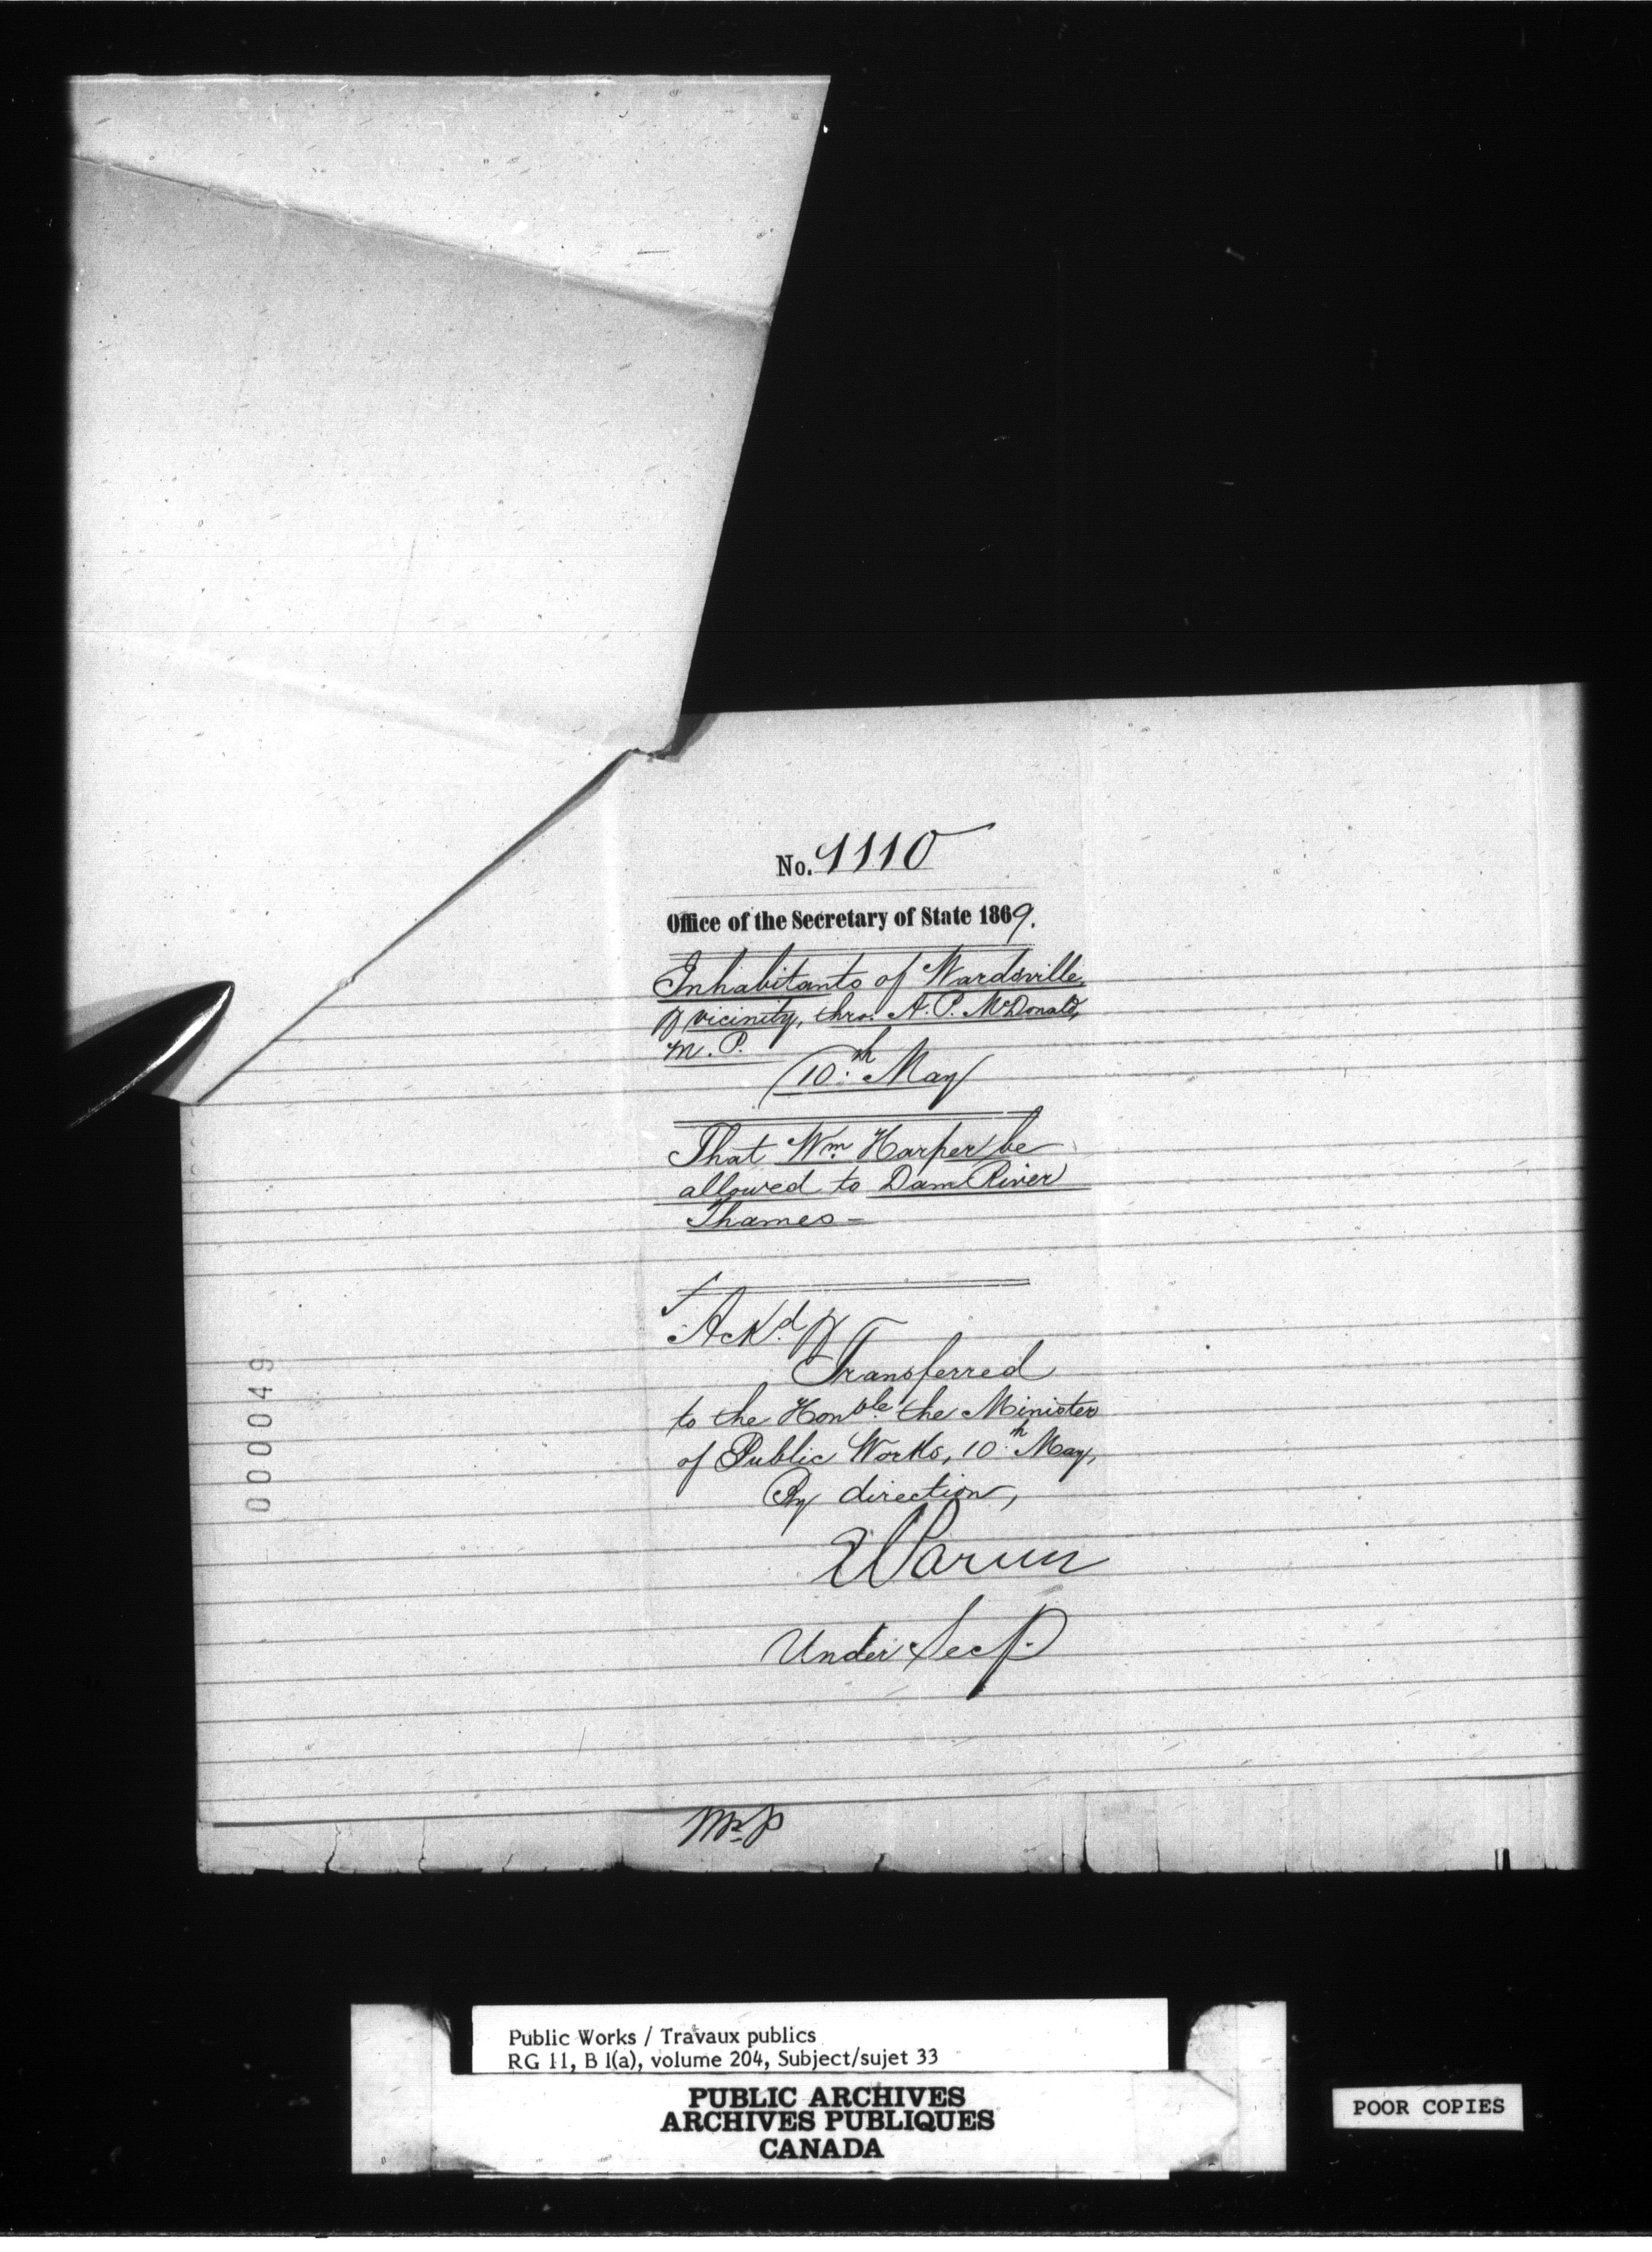 No. 1110
Office of the Secretary of State 1869.
Inhabitants of Wardsville,
& vicinity, thro. A. P. McDonald,
M. P.
10th May
That Wm. Harper be
allowed to Dam River
Thames -
Ackd. &
Transferred
to the Honble. the Minister
of Public Works, 10th May,
By direction,
E Parent
Under Secy.
000049
Public Works / Travaux publics
RG 11, B 1(a), volume 204, Subject/sujet 33
PUBLIC ARCHIVES
ARCHIVES PUBLIQUES
CANADA
POOR COPIES